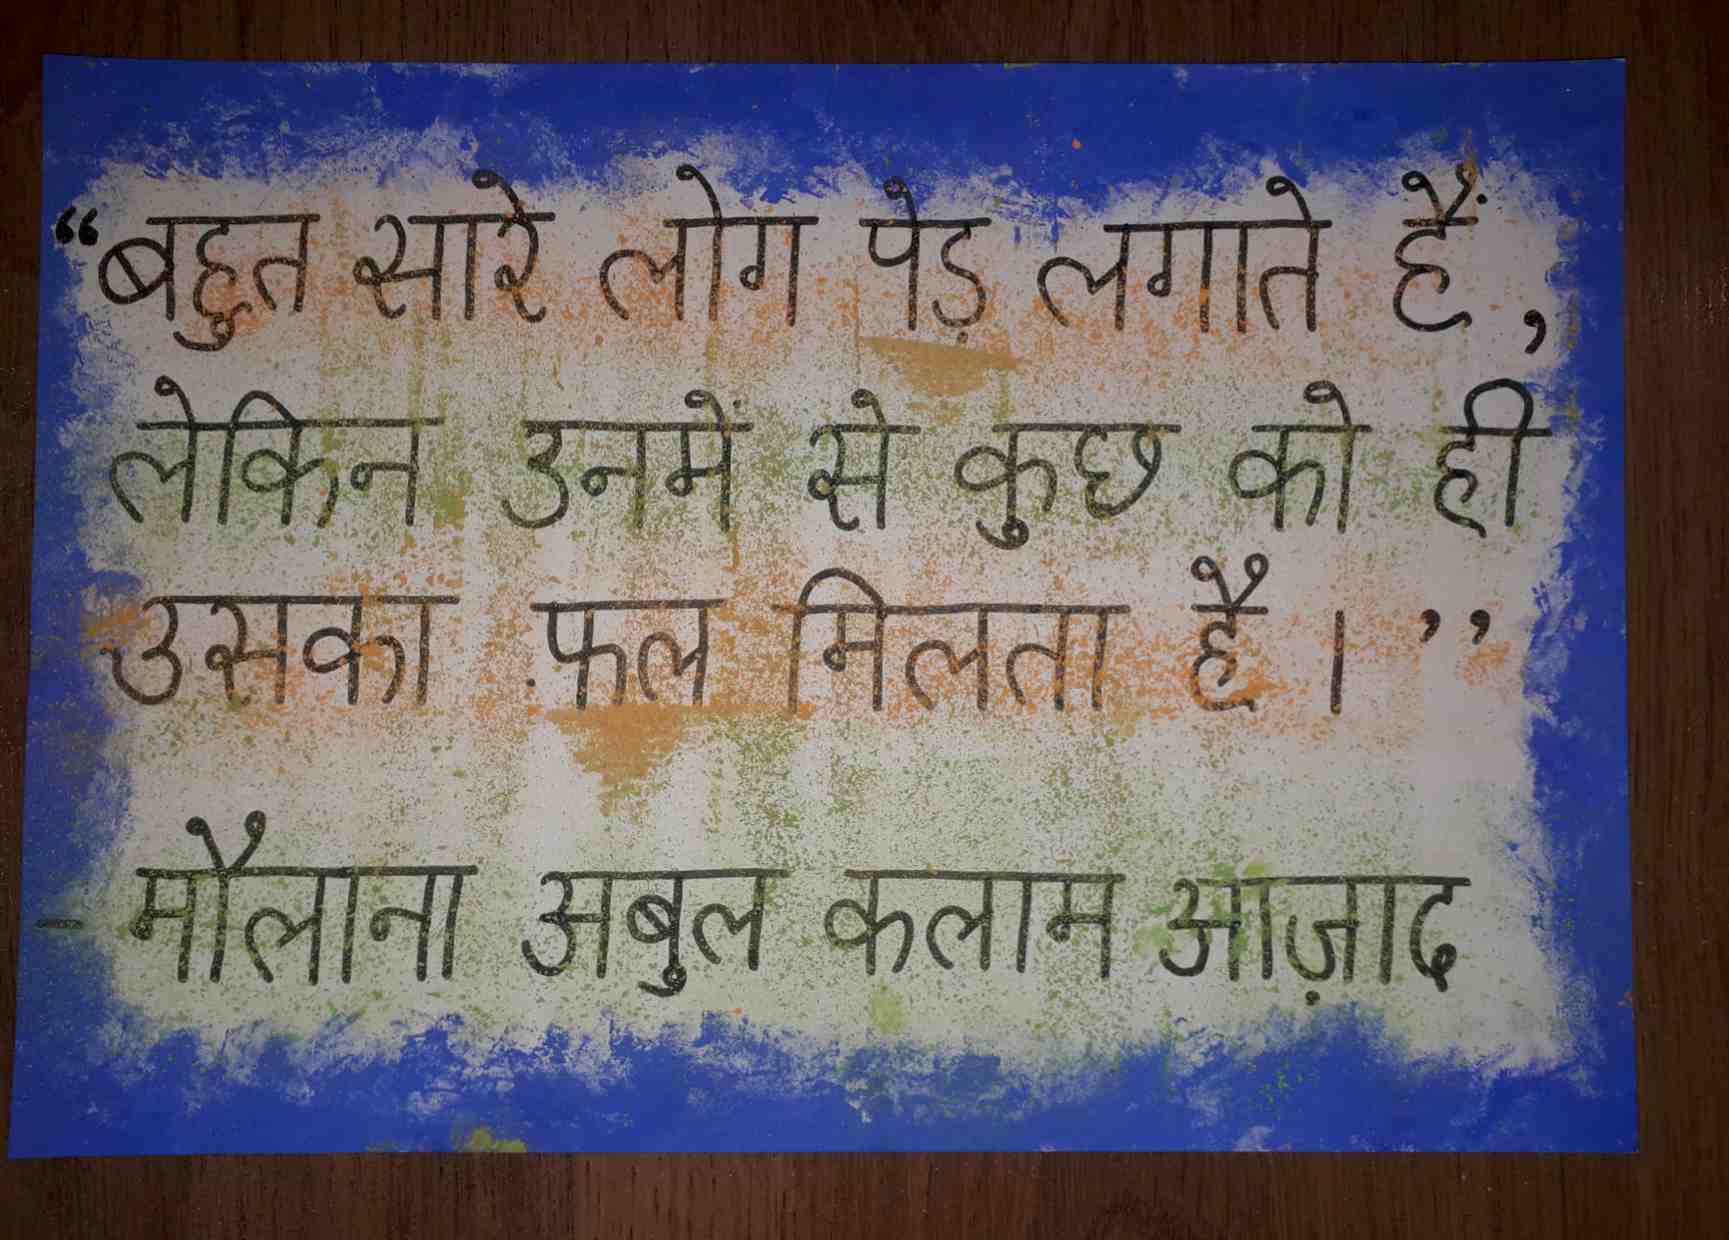 “बहुत सारे लोग पेड़ लगाते हैं,
लेकिन उनमें से कुछ को ही
उसका फल मिलता है।’’
- मौलाना अबुल कलाम आज़ाद